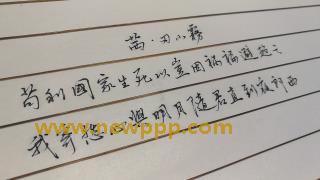 小霧
苟利國家生死以豈因禍福避趨之
我寄愁心與明月隨君直到夜郎西
www.newppp.com